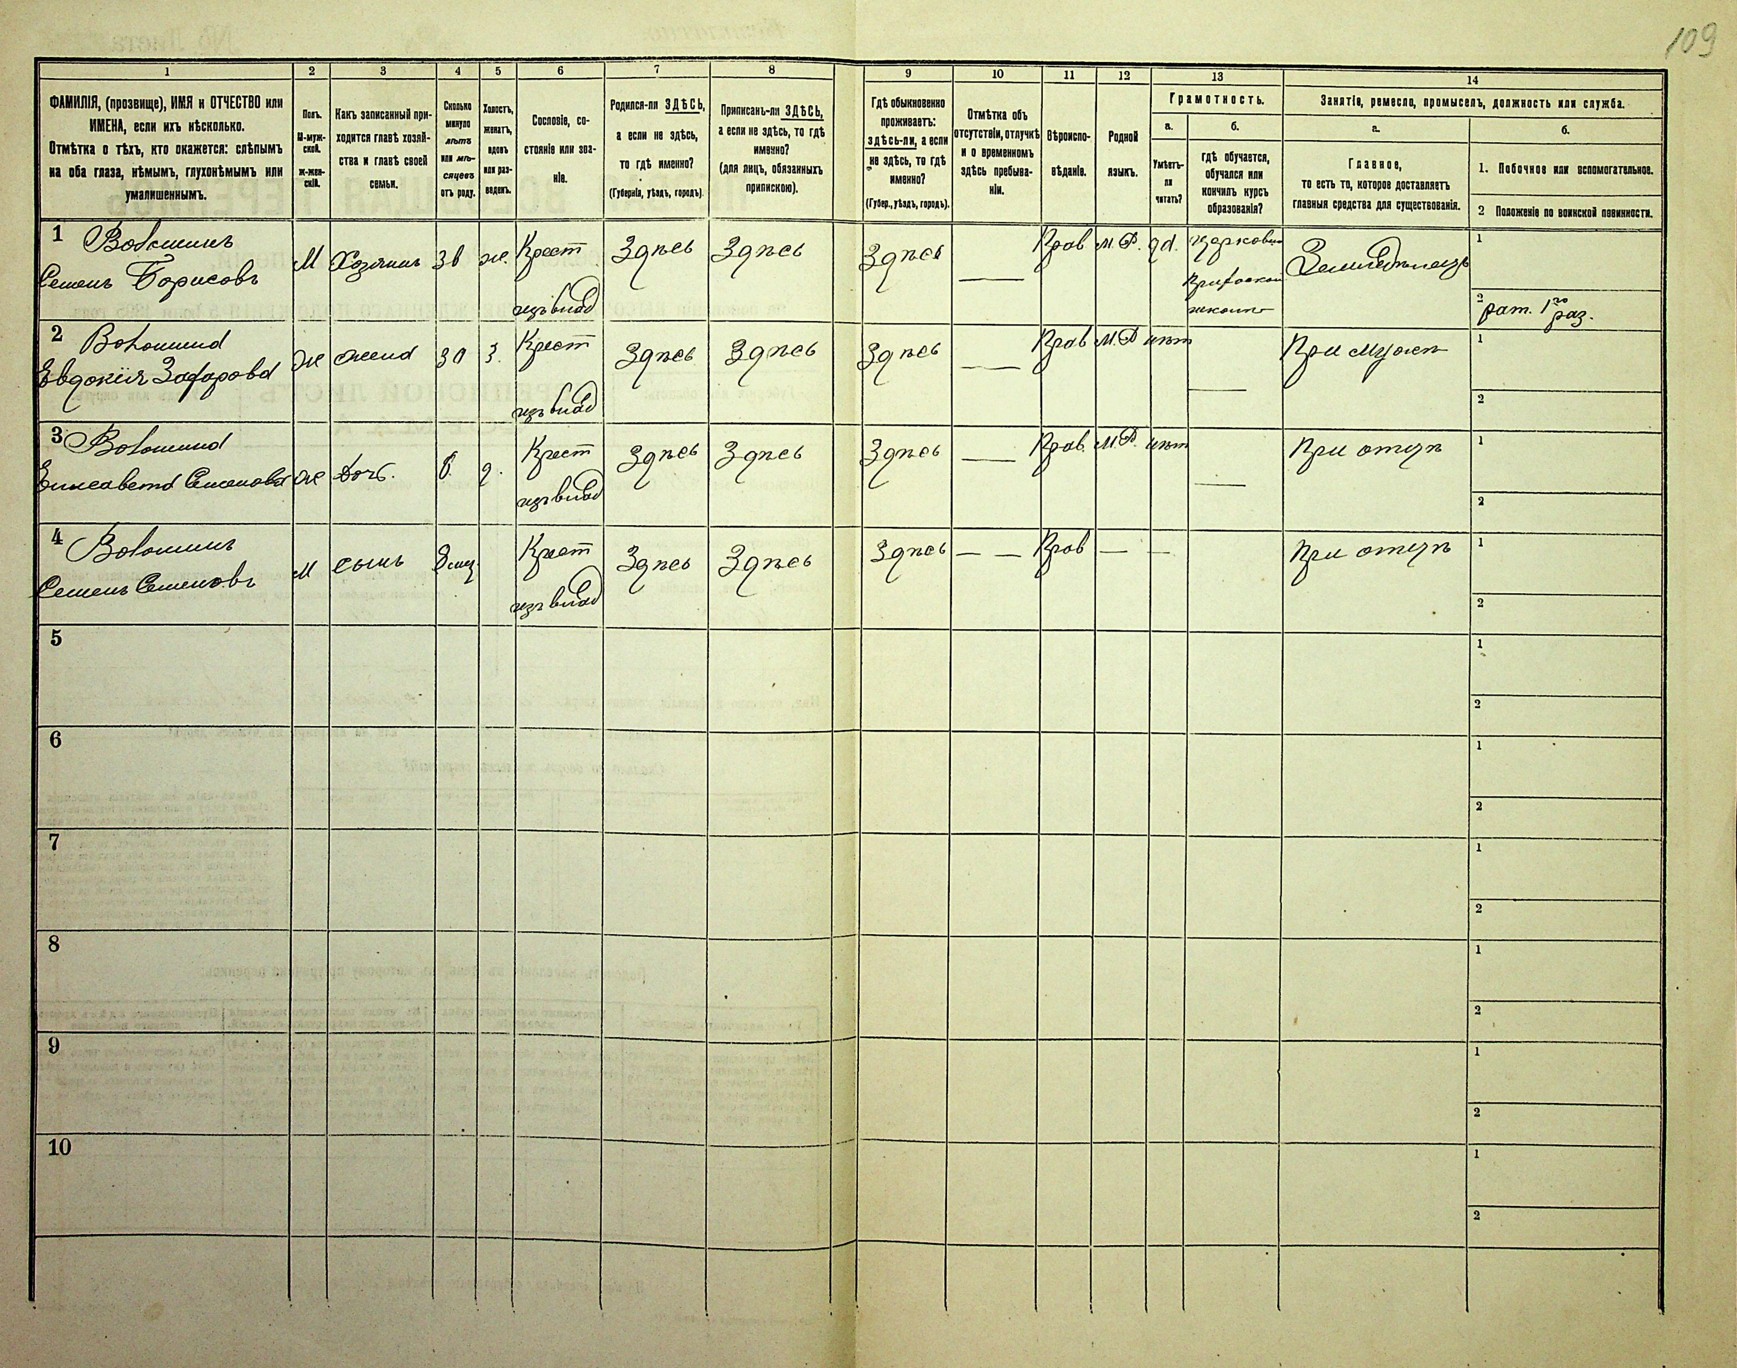 109
1 2 3 4 5 6 7 8 9 10 11 12 13 14
ФАМИЛІЯ, (прозвище), ИМЯ и ОТЧЕСТВО или
ИМЕНА, если ихъ нѣсколько.
Отмѣтка о тѣхъ, кто окажется: слѣпымъ
на оба глаза, нѣмымъ, глухонѣмымъ или
умалишеннымъ.
Полъ.
М-муж-
ской.
Ж-жен-
скій.
Какъ записанный при-
ходится главѣ хозяй-
ства и главѣ своей
семьи.
Сколько
минуло
лѣтъ
или мѣ-
сяцевъ
отъ роду.
Холостъ,
женатъ,
вдовъ
или раз-
веденъ.
Сословіе, со-
стояніе или зва-
ніе.
Родился-ли ЗДѢСЬ,
а если не здѣсь,
то гдѣ именно?
(Губернія, уѣздъ, городъ).
Приписанъ-ли ЗДѢСЬ,
а если не здѣсь, то гдѣ
именно?
(для лицъ, обязанныхъ
припискою).
Гдѣ обыкновенно
проживаетъ:
здѣсь-ли, а если
не здѣсь, то гдѣ
именно?
(Губер., уѣздъ, городъ).
Отмѣтка объ
отсутствіи, отлучкѣ
и о временномъ
здѣсь пребыва-
ніи.
Вѣроиспо-
вѣданіе.
Родной
языкъ.
Грамотность.
а.
Умѣетъ-
ли
читать?
б.
гдѣ обучается,
обучался или
кончилъ курсъ
образованія?
Занятіе, ремесло, промыселъ, должность или служба.
а.
Главное,
то есть то, которое доставляетъ
главныя средства для существованія.
б.
1. Побочное или вспомогательное.
2 Положеніе по воинской повинности.
1
Семенъ Борисовъ
М Хозяинъ ж. Крест
изъ влад
Здѣсь Здѣсь Здѣсь — Прав М.Р. да
Земледѣлецъ
1
2 рат. 1го раз.
2
Евдокія
Ж жена 30 З. Крест
изъ влад
Здѣсь Здѣсь Здѣсь — Прав М.Р. нѣт — При мужѣ
1
2
3
Елисавета Семенова
Ж дочь. 8. д. Крест
изъ влад
Здѣсь Здѣсь Здѣсь — Прав. М.Р. нѣт — При отцѣ
1
2
4
Семенъ Семеновъ
М сынъ Крест
изъ влад
Здѣсь Здѣсь Здѣсь — — Прав — — При отцѣ
1
2
5 1
2
6 1
2
7 1
2
8 1
2
9 1
2
10 1
2